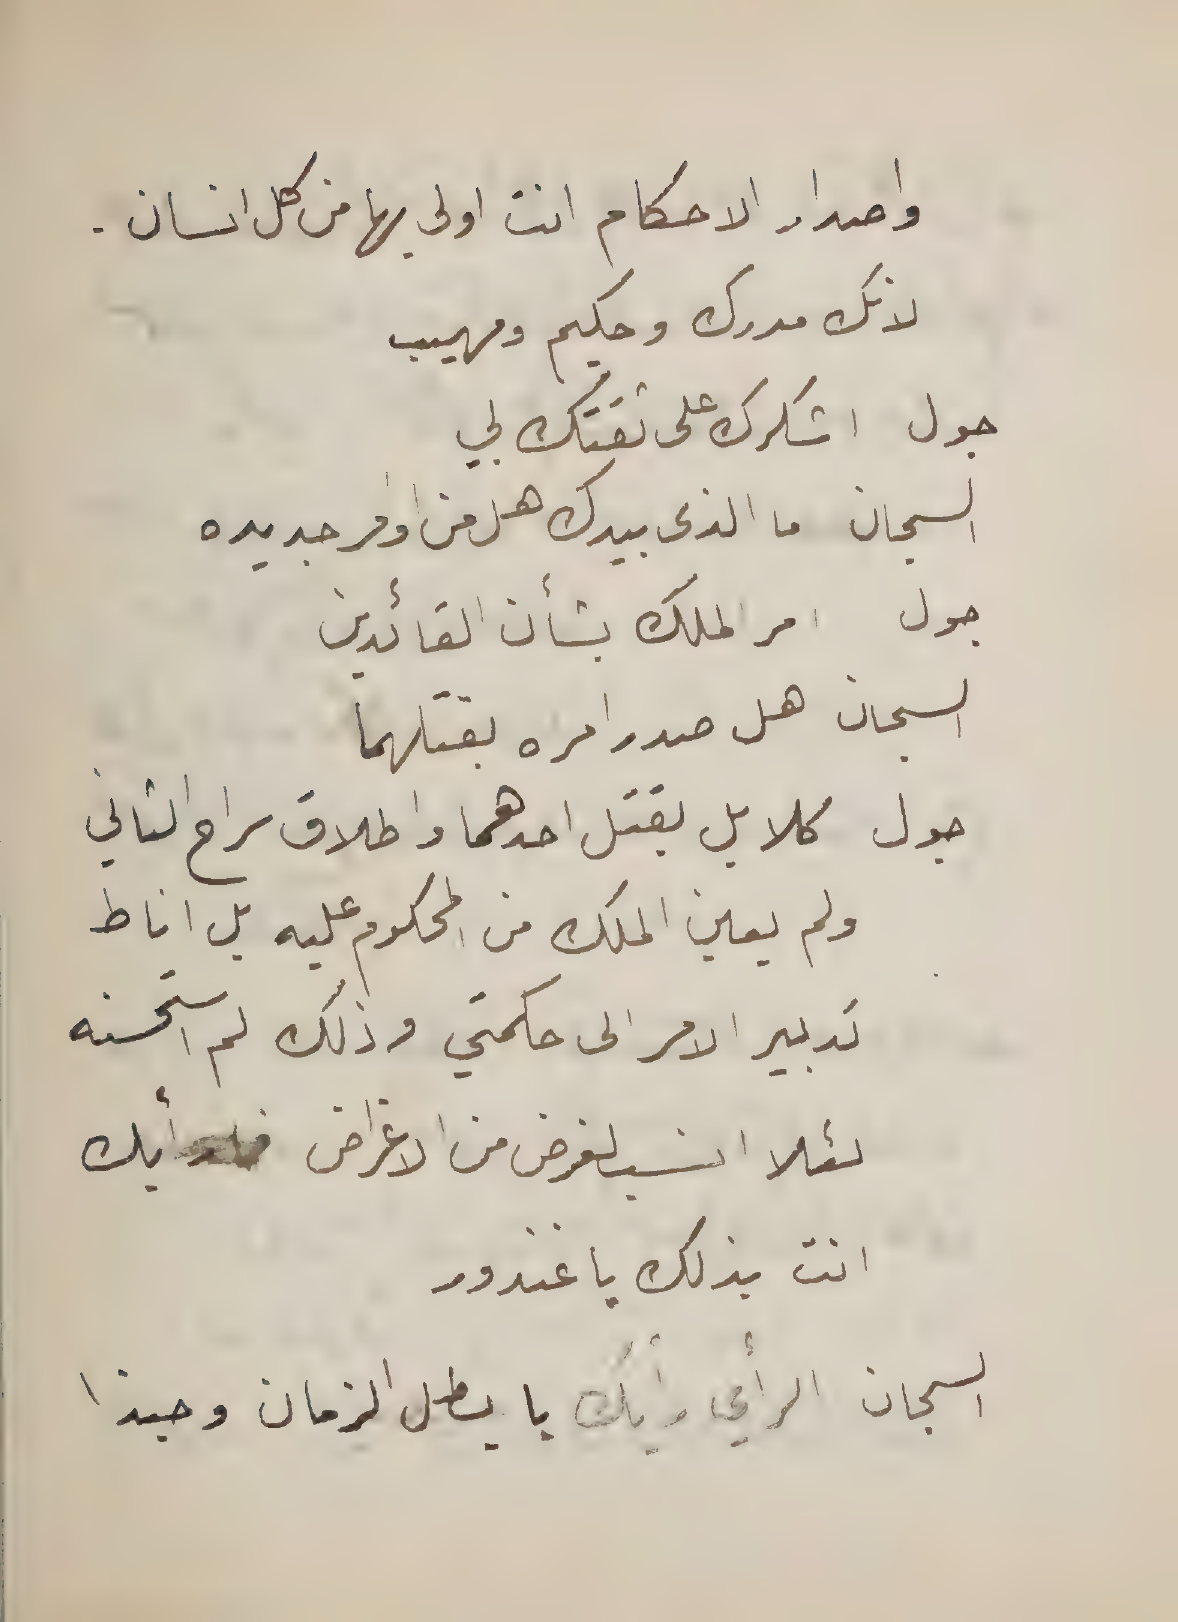 واصدار الاحكام انت اولى بها من كل انسان .
لانك مدرك وحكيم ومهيب
جول اشكرك على ثقتك بي
السجان ما الذى بيدك هل من اوامر جديده
جول امر الملك بشأن القائدين
السجان هل صدر امره بقتلهما
جول كلا بل بقتل احدهما واطلاق سراح الثاني
ولم يعين الملك من المحكوم عليه بل اناط
تدبير الامر الى حكمتي وذلك لم استحسنه
لئلا انسب لغرض من الاغراض رأيك
انت بذلك يا غندور
السجان الرأي رأيك يا بطل الزمان وحبذا